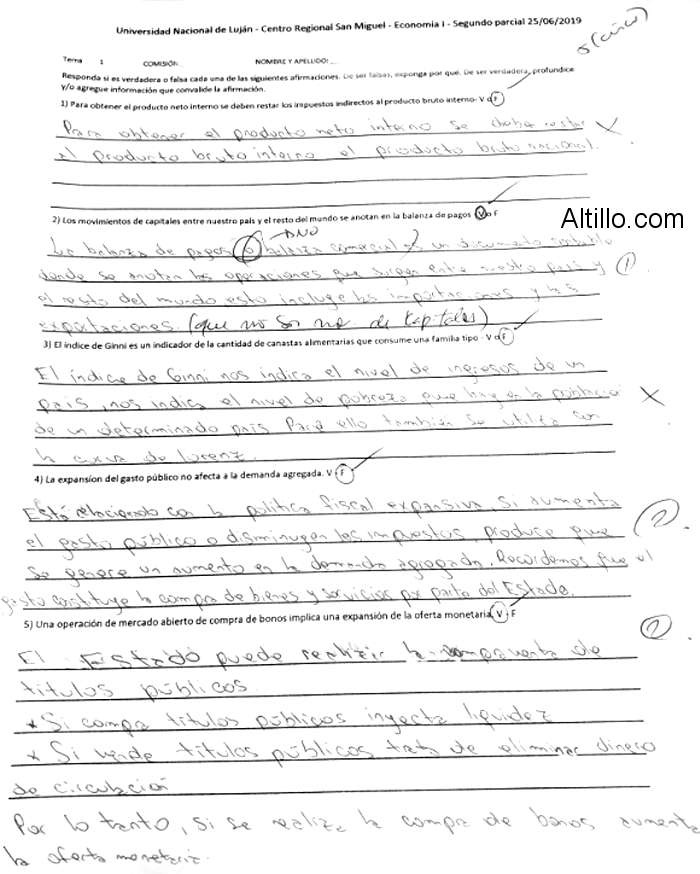 Universidad Nacional de Luján - Centro Regional San Miguel - Economia I - Segundo parcial 25/06/2019
5 (cinco)
Tema 1 COMISIÓN: NOMBRE Y APELLIDO:
Responda si es verdadera o falsa cada una de las siguientes afirmaciones. De ser falsas, exponga por qué. De ser verdadera, profundice
y/o agregue información que convalide la afirmación.
1) Para obtener el producto neto interno se deben restar los impuestos indirectos al producto bruto interno- V o F
Para obtener el producto neto interno se debe restar
al producto bruto interno el producto bruto nacional.
2) Los movimientos de capitales entre nuestro país y el resto del mundo se anotan en la balanza de pagos V o F
Altillo.com
NO
La balanza de pagos (o balanza comercial) es un documento contable
donde se anotan las operaciones que surgen entre nuestro país y
1
el resto del mundo esto incluye las importaciones y las
exportaciones. (que no son de capitales)
3) El índice de Ginni es un indicador de la cantidad de canastas alimentarias que consume una familia tipo - V o F
El índice de Ginni nos indica el nivel de ingresos de un
país, nos indica el nivel de pobreza que hay en la población
de un determinado país. Para ello también se utiliza con
la curva de lorenz.
4) La expansíon del gasto público no afecta a la demanda agregada. V - F
Está relacionado con la política fiscal expansiva, si aumenta
el gasto público o disminuyen los impuestos, produce que
2
se genere un aumento en la demanda agregada. Recordemos que el
gasto constituye la compra de bienes y servicios por parte del Estado.
5) Una operación de mercado abierto de compra de bonos implica una expansión de la oferta monetaria. V - F
2
El Estado puede realizar la compraventa de
títulos públicos
* Si compra títulos públicos inyecta liquidez
* Si vende títulos públicos trata de eliminar dinero
de circulación
Por lo tanto, si se realiza la compra de bonos aumenta
la oferta monetaria.